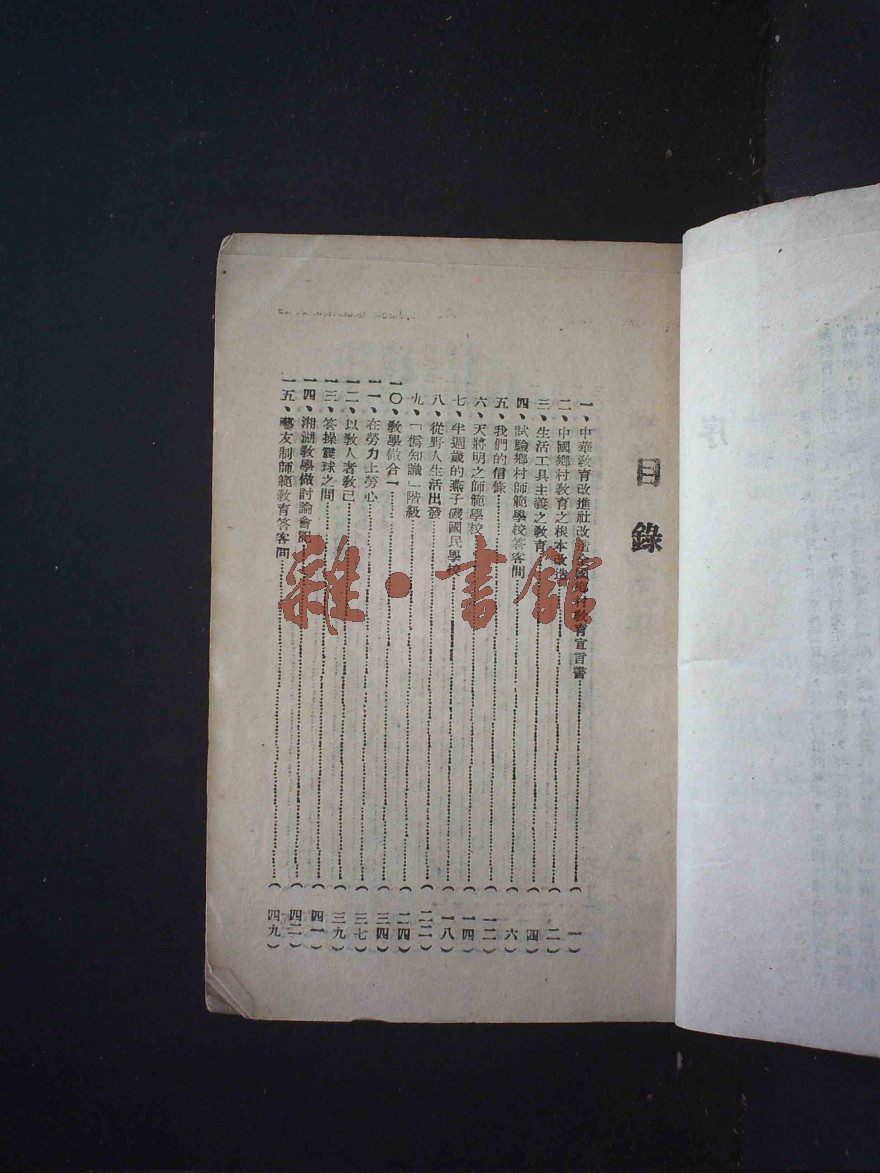 序
目錄
一、中華教育改進社改造全國鄉村教育宣言書……(一)
二、中國鄉村教育之根本改造……(二)
三、生活工具主義之教育……(四)
四、試驗鄉村師範學校答客問……(六)
五、我們的信條……(一二)
六、天將明之師範學校……(一四)
七、半週歲的燕子磯國民學校……(一八)
八、從野人生活出發……(二二)
九、「僞知識」階級……(二四)
一〇、教學做合一……(三四)
一一、在勞力上勞心……(三七)
一二、以教人者教己……(三九)
一三、答操震球之問……(四一)
一四、湘湖教學做討論會記……(四二)
一五、藝友制師範教育答客問……(四九)
雜·書館